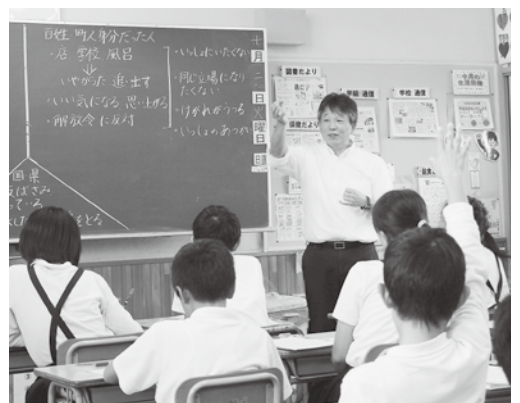 百姓 町人身分だった人
・店 学校 風呂
いやがった 追い出す
・いい気になる 思い上がる
・解放令に反対
・いっしょにいたくない
・同じ立場になり
たくない
・けがれがうつる
・いっしょのあつかい
十
月
二
日
火
曜
日
国 県
板ばさみ
っている
をとる
図書だより
学級通信
学校 通信
今月の
生活目標
健康だより